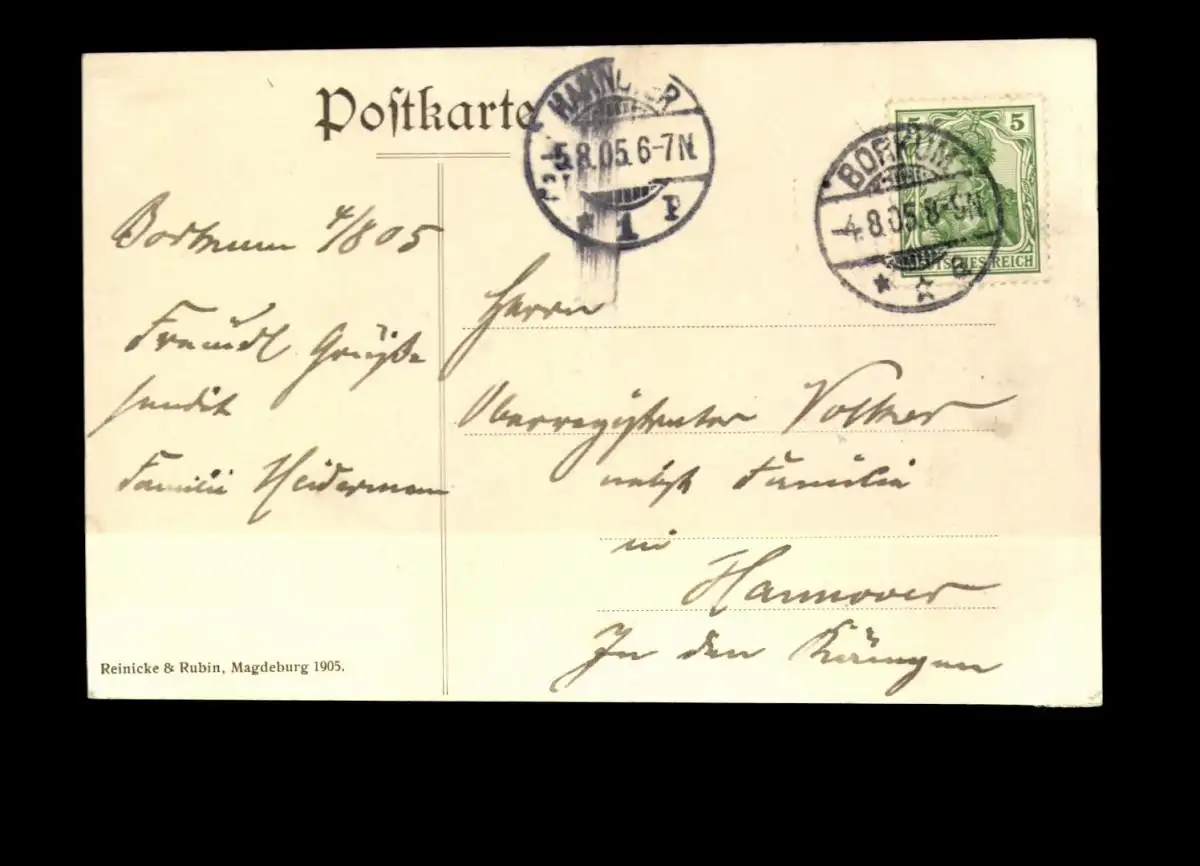 Postkarte
HANNOVER
5.8.05.6-7N.
* 1 P
BORKUM
4.8.05.8-9N
* * a
5 5
DEUTSCHES REICH
Borkum 4/8 05
Freundl Grüße
sendet
Familie Heidermann
Herrn
Oberregistrator Volker
nebst Familie
in
Hannover
In den
Reinicke & Rubin, Magdeburg 1905.